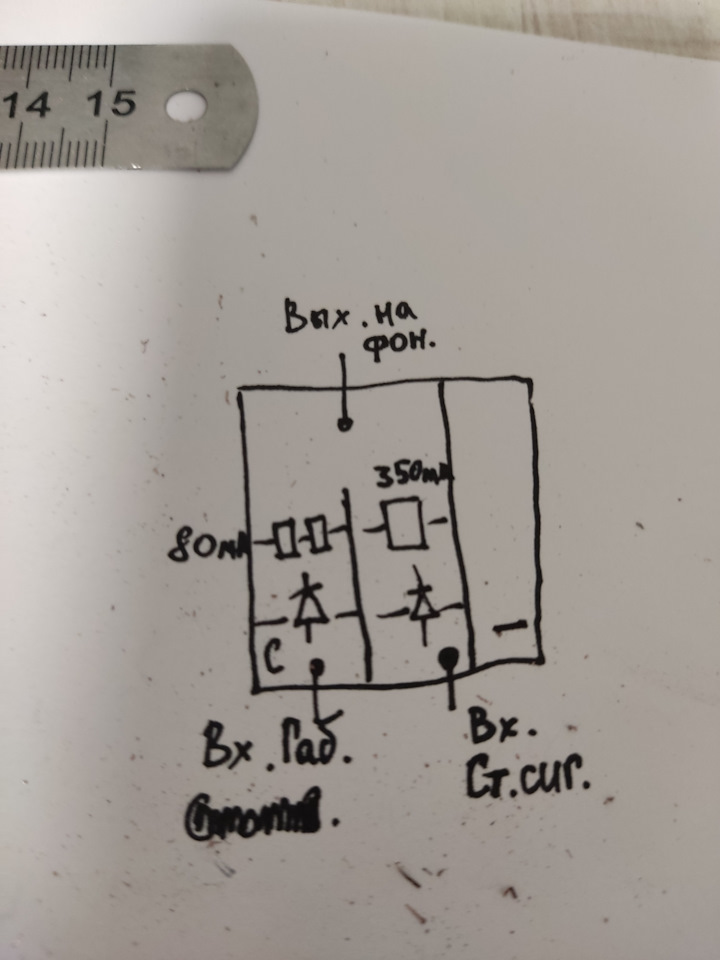 14 15
Вых. на
фон.
350мА
80мА
С
Вх. Габ.
Вх.
Ст. сиг.